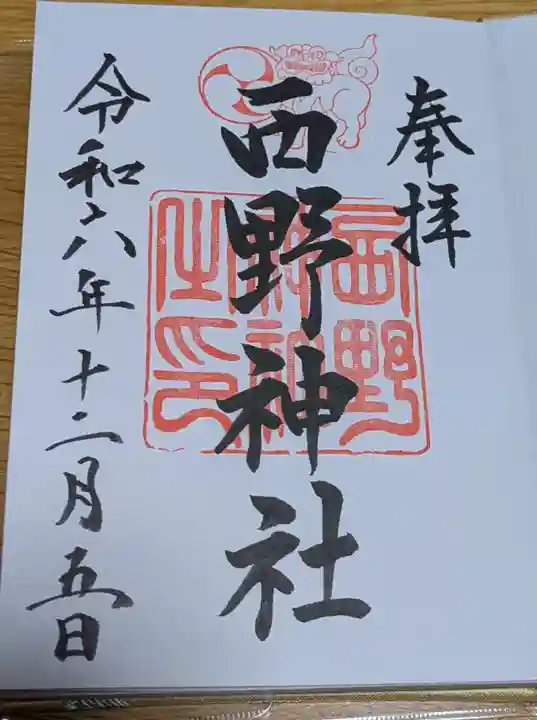 奉拝
西野神社
西野神社之印
令和六年十二月五日